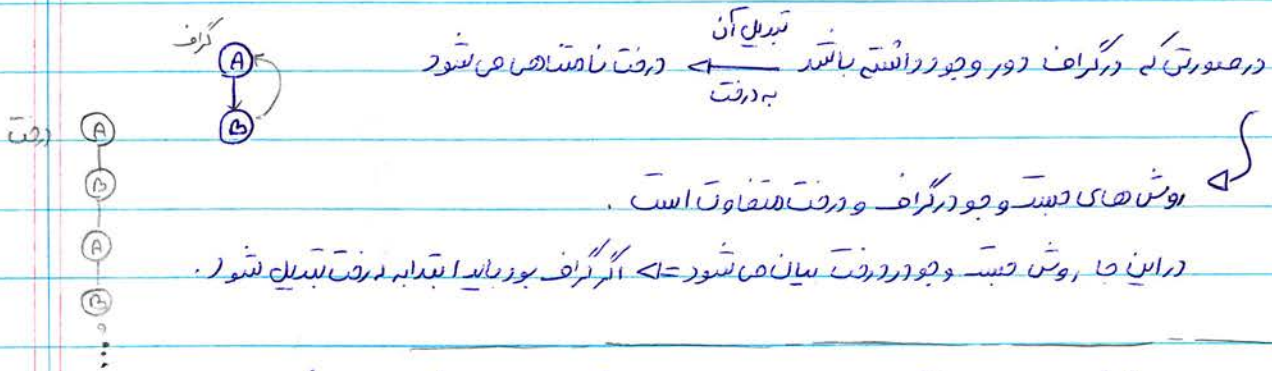 گراف
A
B
در صورتی که در گراف دور وجود داشته باشد تبدیل آن به درخت => درخت نامتناهی می شود
درخت
A
B
A
B
روش های جست و جو در گراف و درخت متفاوت است .
در این جا روش جست و جو در درخت بیان می شود => اگر گراف بود باید ابتدا به درخت تبدیل شود .